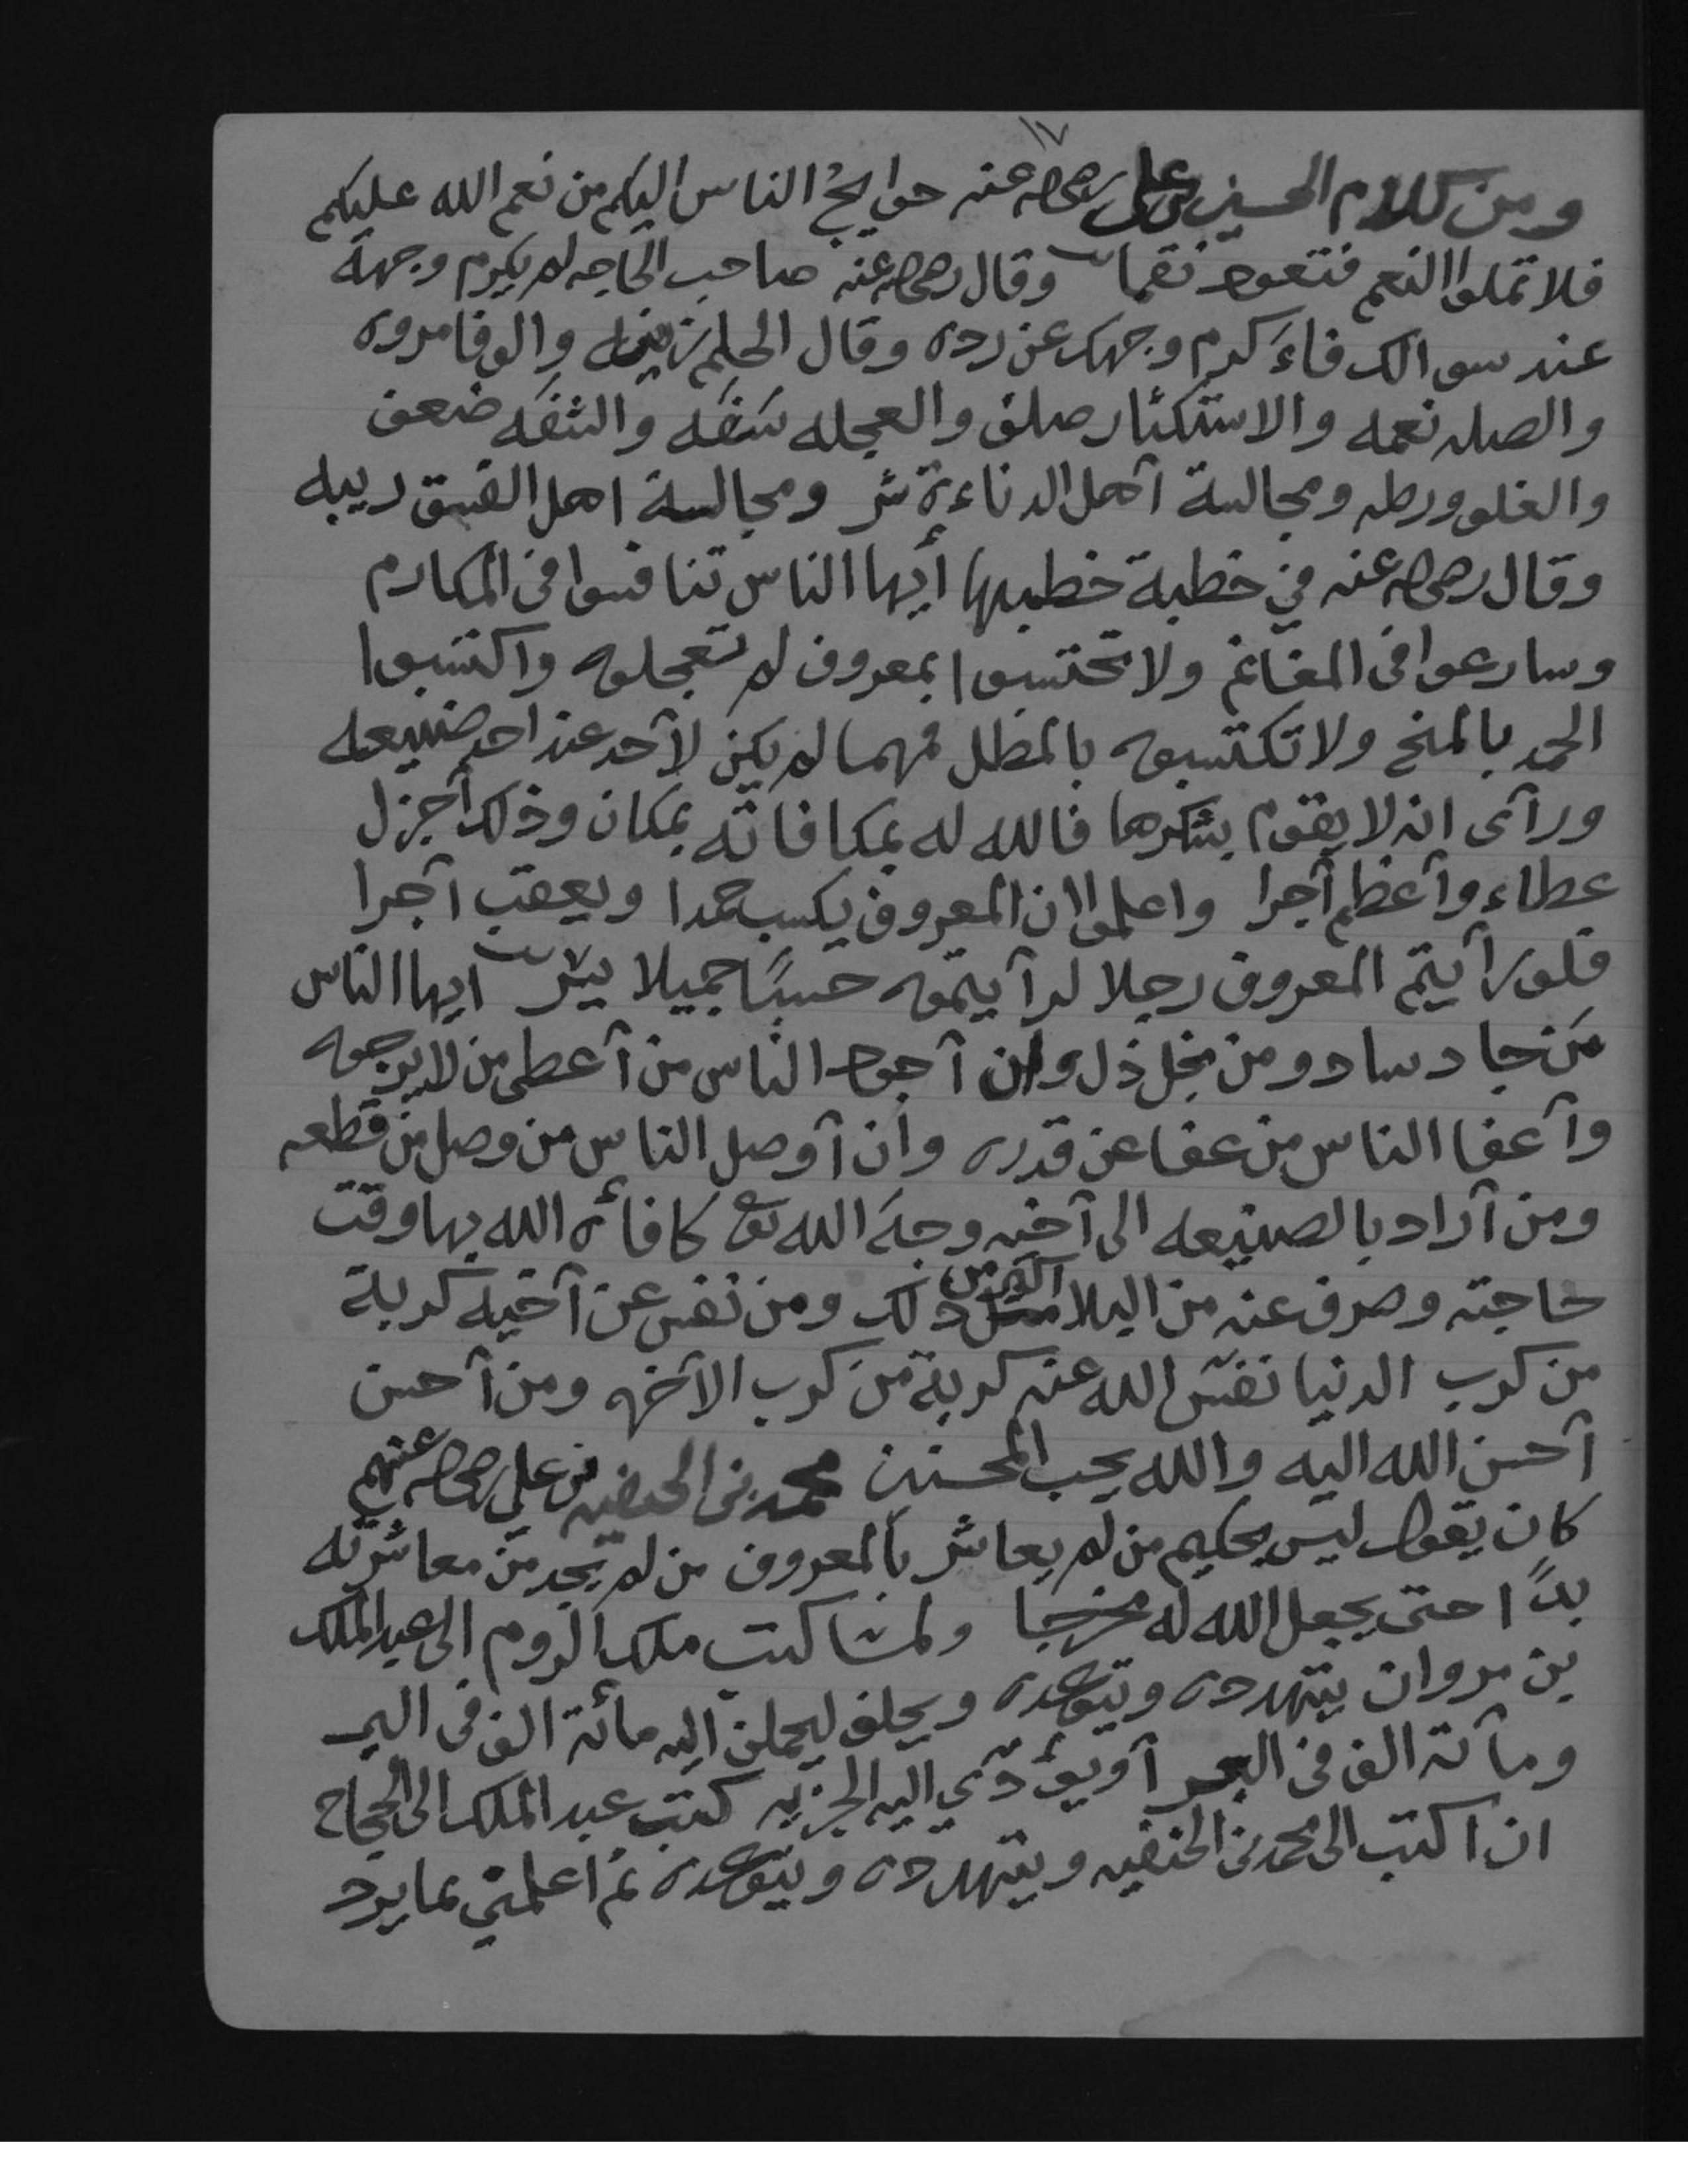 ١٧
ومن كلام الحسين بن علي رضي الله عنه حوايج الناس اليكم من نعم الله عليكم
فلا تملوا النعم فتعود نقما وقال رضي الله عنه صاحب الحاجه لم يكرم وجهه
عند سوالك فاءكرم وجهك عن رده وقال الحلم زينه والوفا مروه
والصله نعمه والاستكثار صلف والعجله سَفَه والشفَه ضعف
والغلو ورطه ومجالسة آهل الدناءة شر ومجالسة اهل الفسق ريبه
وقال رضي الله عنه في خطبة خطبها أيها الناس تنافسوا فى المكارم
وسارعوا فى المغانم ولا تحتسبوا بمعروف لم تعجلوه واكتسبوا
الحمد بالمنح ولا تكتسبوه بالمطل فمهما لم يكن لآحد عند احد صنيعه
ورآى انه لا يقوم بشكرها فالله له بمكافاته بمكان وذلك أجزل
عطاء وآعظم آجرا واعلموا ان المعروف يكسب حمدا ويعقب آجرا
فلو رآيتم المعروف رجلا لرآيتموه حسنًا جميلا يسر ايها الناس
مَن جاد ساد ومن بخل ذل وان آجود الناس من آعطى من لا يرجوه
وآعفا الناس من عفا عن قدره وان آوصل الناس من وصل من قطعه
ومن آراد بالصنيعه الى آخيه وجهَ الله تع كافأه الله بها وقت
حاجته وصرف عنه من البلا اكثر من ذلك ومن نفس عن آخيه كربة
من كرب الدنيا نفّس الله عنه كربة من كرب الآخره ومن آحسن
آحسن الله اليه والله يحب المحسنين محمد بن الحنفيه بن على رضي الله عنهم
كان يقول ليس بحكيم من لم يعاشر بالمعروف من لم يجد من معاشرته
بدًا حتى يجعل الله له مخرجا ولما كتب ملك الروم الى عبد الملك
بن مروان يتهدده ويتوعده ويحلف ليحملن اليه مائة الف فى البر
ومآئة الف فى البحر آو يؤدّي اليه الجزيه كتب عبد الملك الى الحجاج
ان اكتب الى محمد بن الحنفيه ويتهدده ويتوعده ثم اعلمني بما يرد